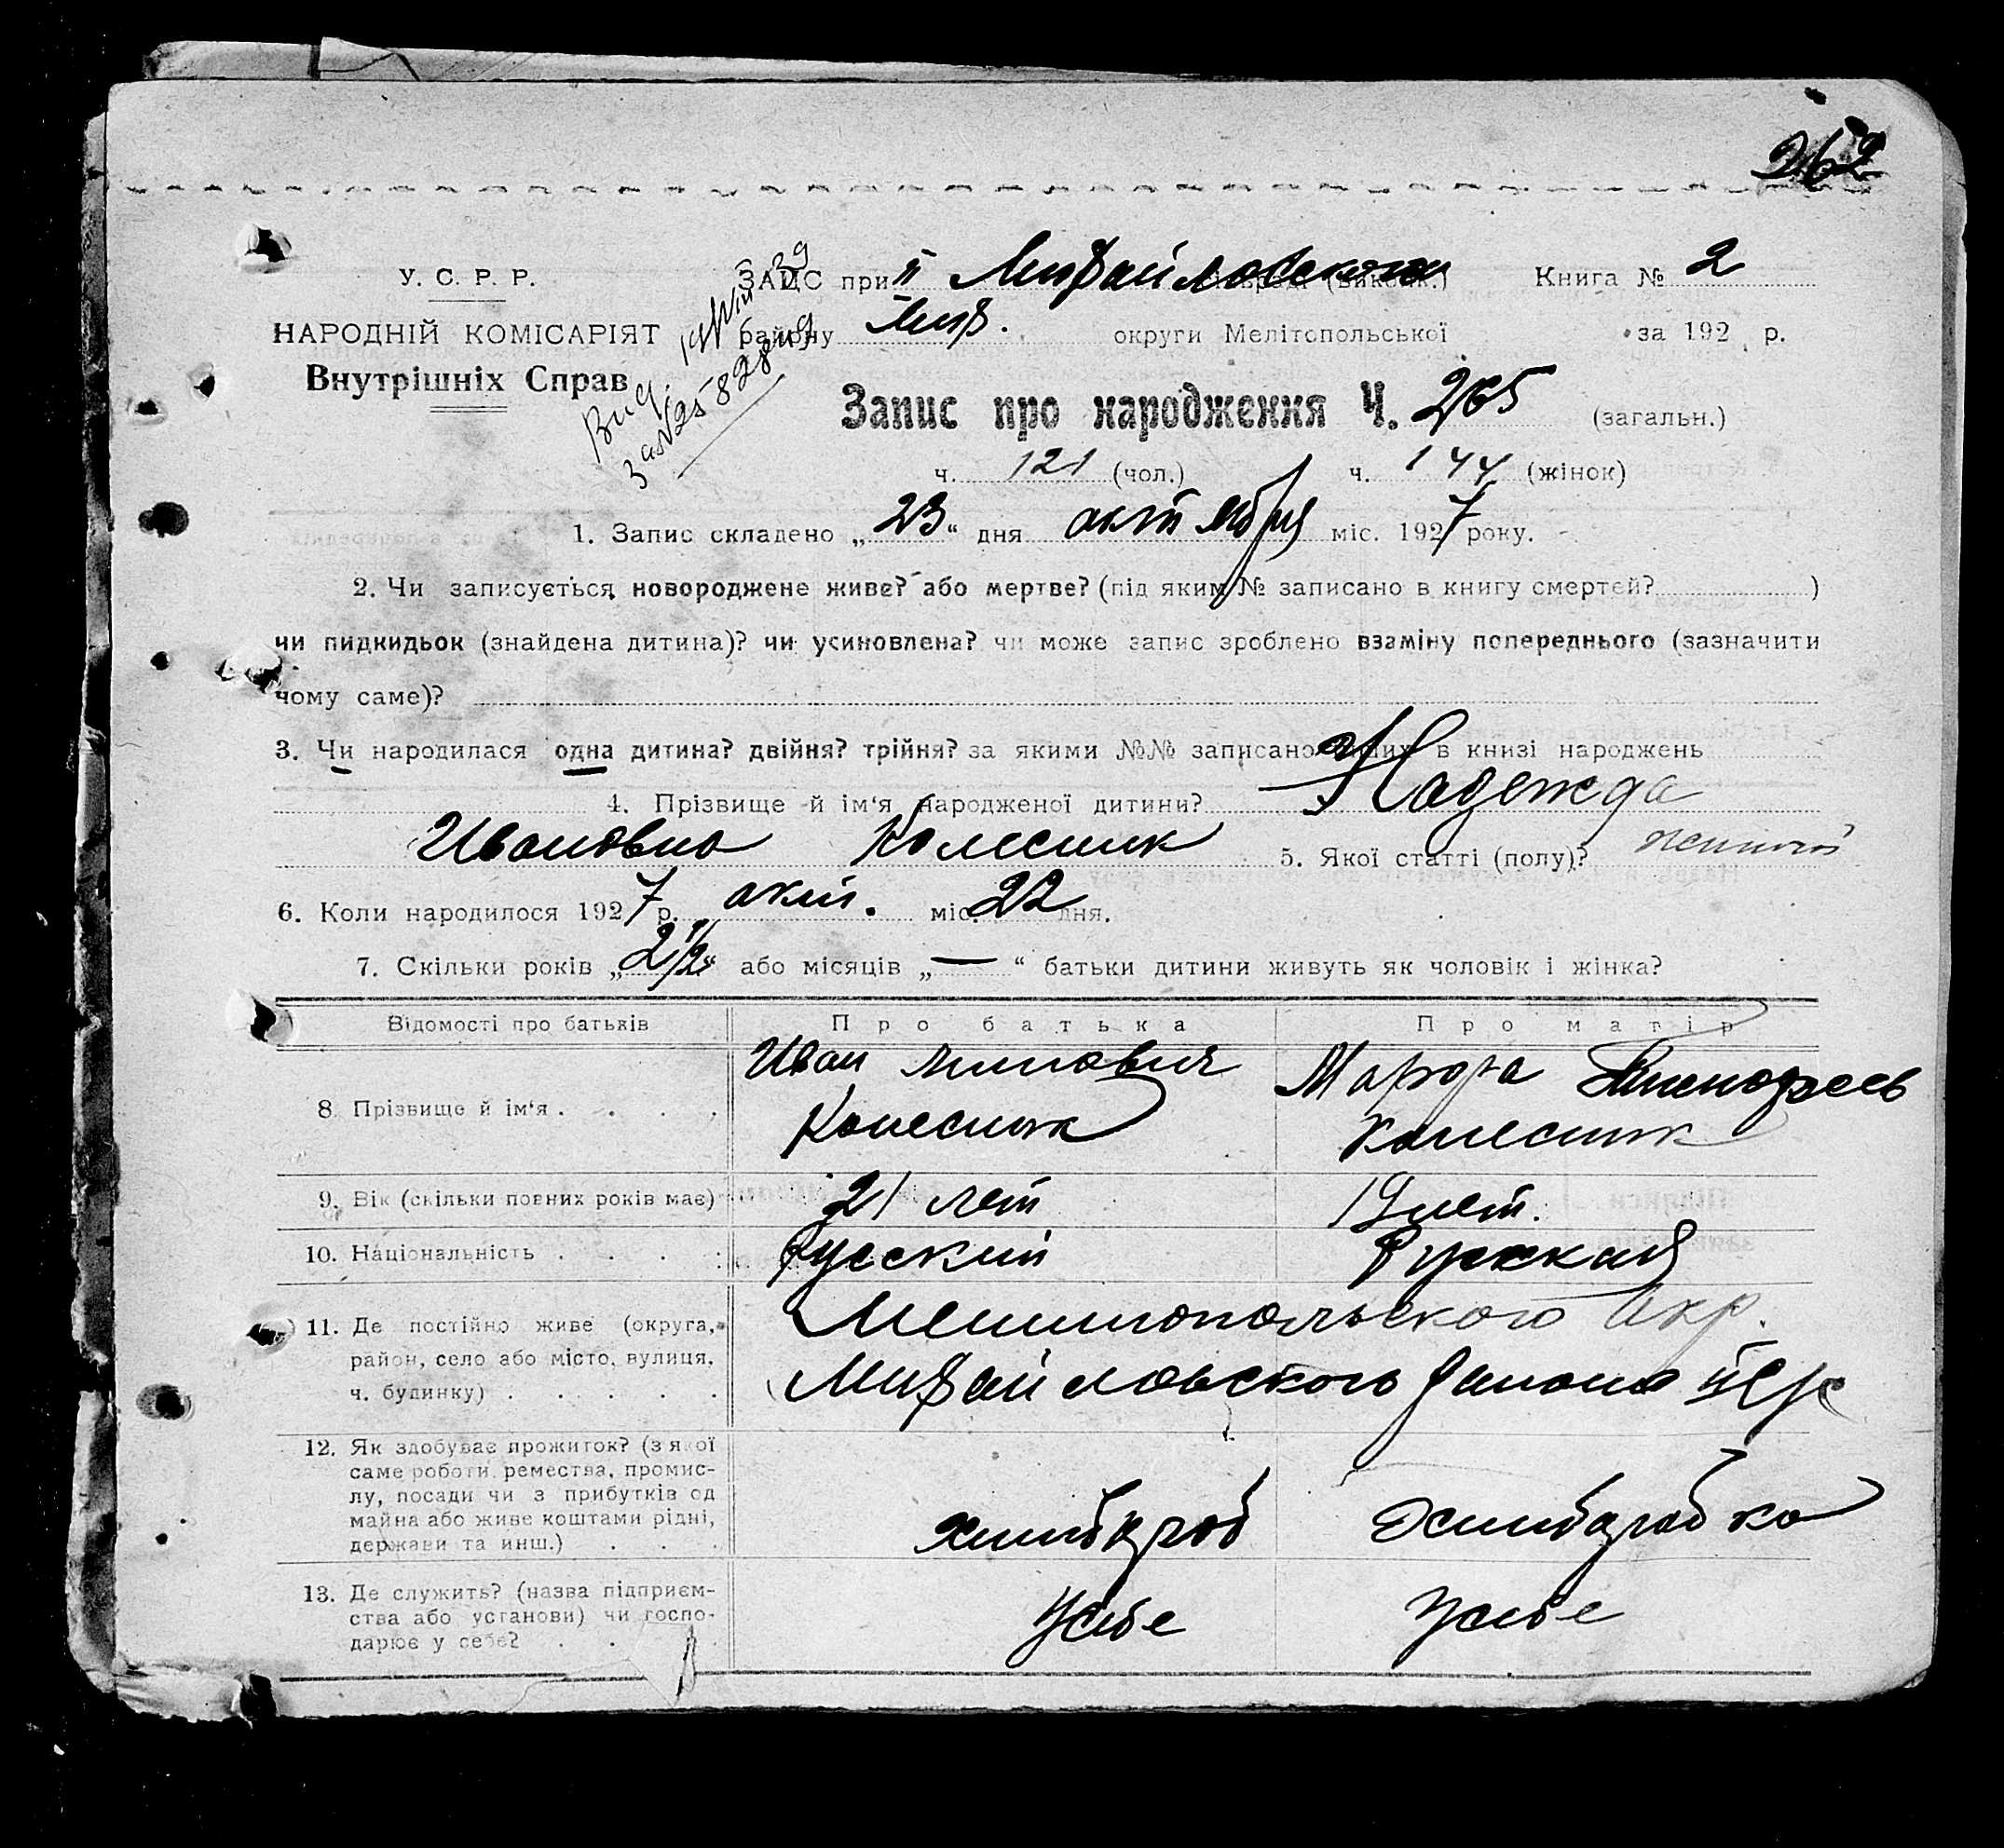 262
У. С. Р. Р.
НАРОДНІЙ КОМІСАРІЯТ
Внутрішніх Справ
ЗАЦС при II Михайловском (виконк.) Книга № 2
району Мих. округи Мелітопольської за 192 р.
Запис про народження Ч. 265 (загальн.)
ч. 121 (чол.) ч. 144 (жінок)
1. Запис складено „23“ дня октября міс. 1927 року.
2. Чи записується новороджене живе? або мертве? (під яким № записано в книгу смертей? )
чи пидкидьок (знайдена дитина)? чи усиновлена? чи може запис зроблено взаміну попереднього (зазначити
чому саме)?
3. Чи народилася одна дитина? двійня? трійня? за якими №№ записано инших в книзі народжень
4. Прізвище й ім‘я народженої дитини? Надежда
Ивановна Колесник 5. Якої статті (полу)? женский
6. Коли народилося 1927 р. окт. міс. 22 дня.
7. Скільки років „2 1/2“ або місяців „—“ батьки дитини живуть як чоловік і жінка?
Відомості про батьків Про батька Про матір
8. Прізвище й ім‘я . . . . Иван
Колесник Колесник
9. Вік (скільки повних років має) 21 лет 19 лет.
10. Національність . . . . Русский Русская
11. Де постійно живе (округа, Мелитопольского Окр.
район, село або місто, вулиця, Михайловского района
ч. будинку) . . . . .
12. Як здобуває прожиток? (з якої
саме роботи, ремества, промис-
лу, посади чи з прибутків од
майна або живе коштами рідні, хлибороб хлиборобка
держави та инш.) . . .
13. Де служить? (назва підприєм-
ства або установи) чи госпо- у себе у себе
дарює у себе? . . .